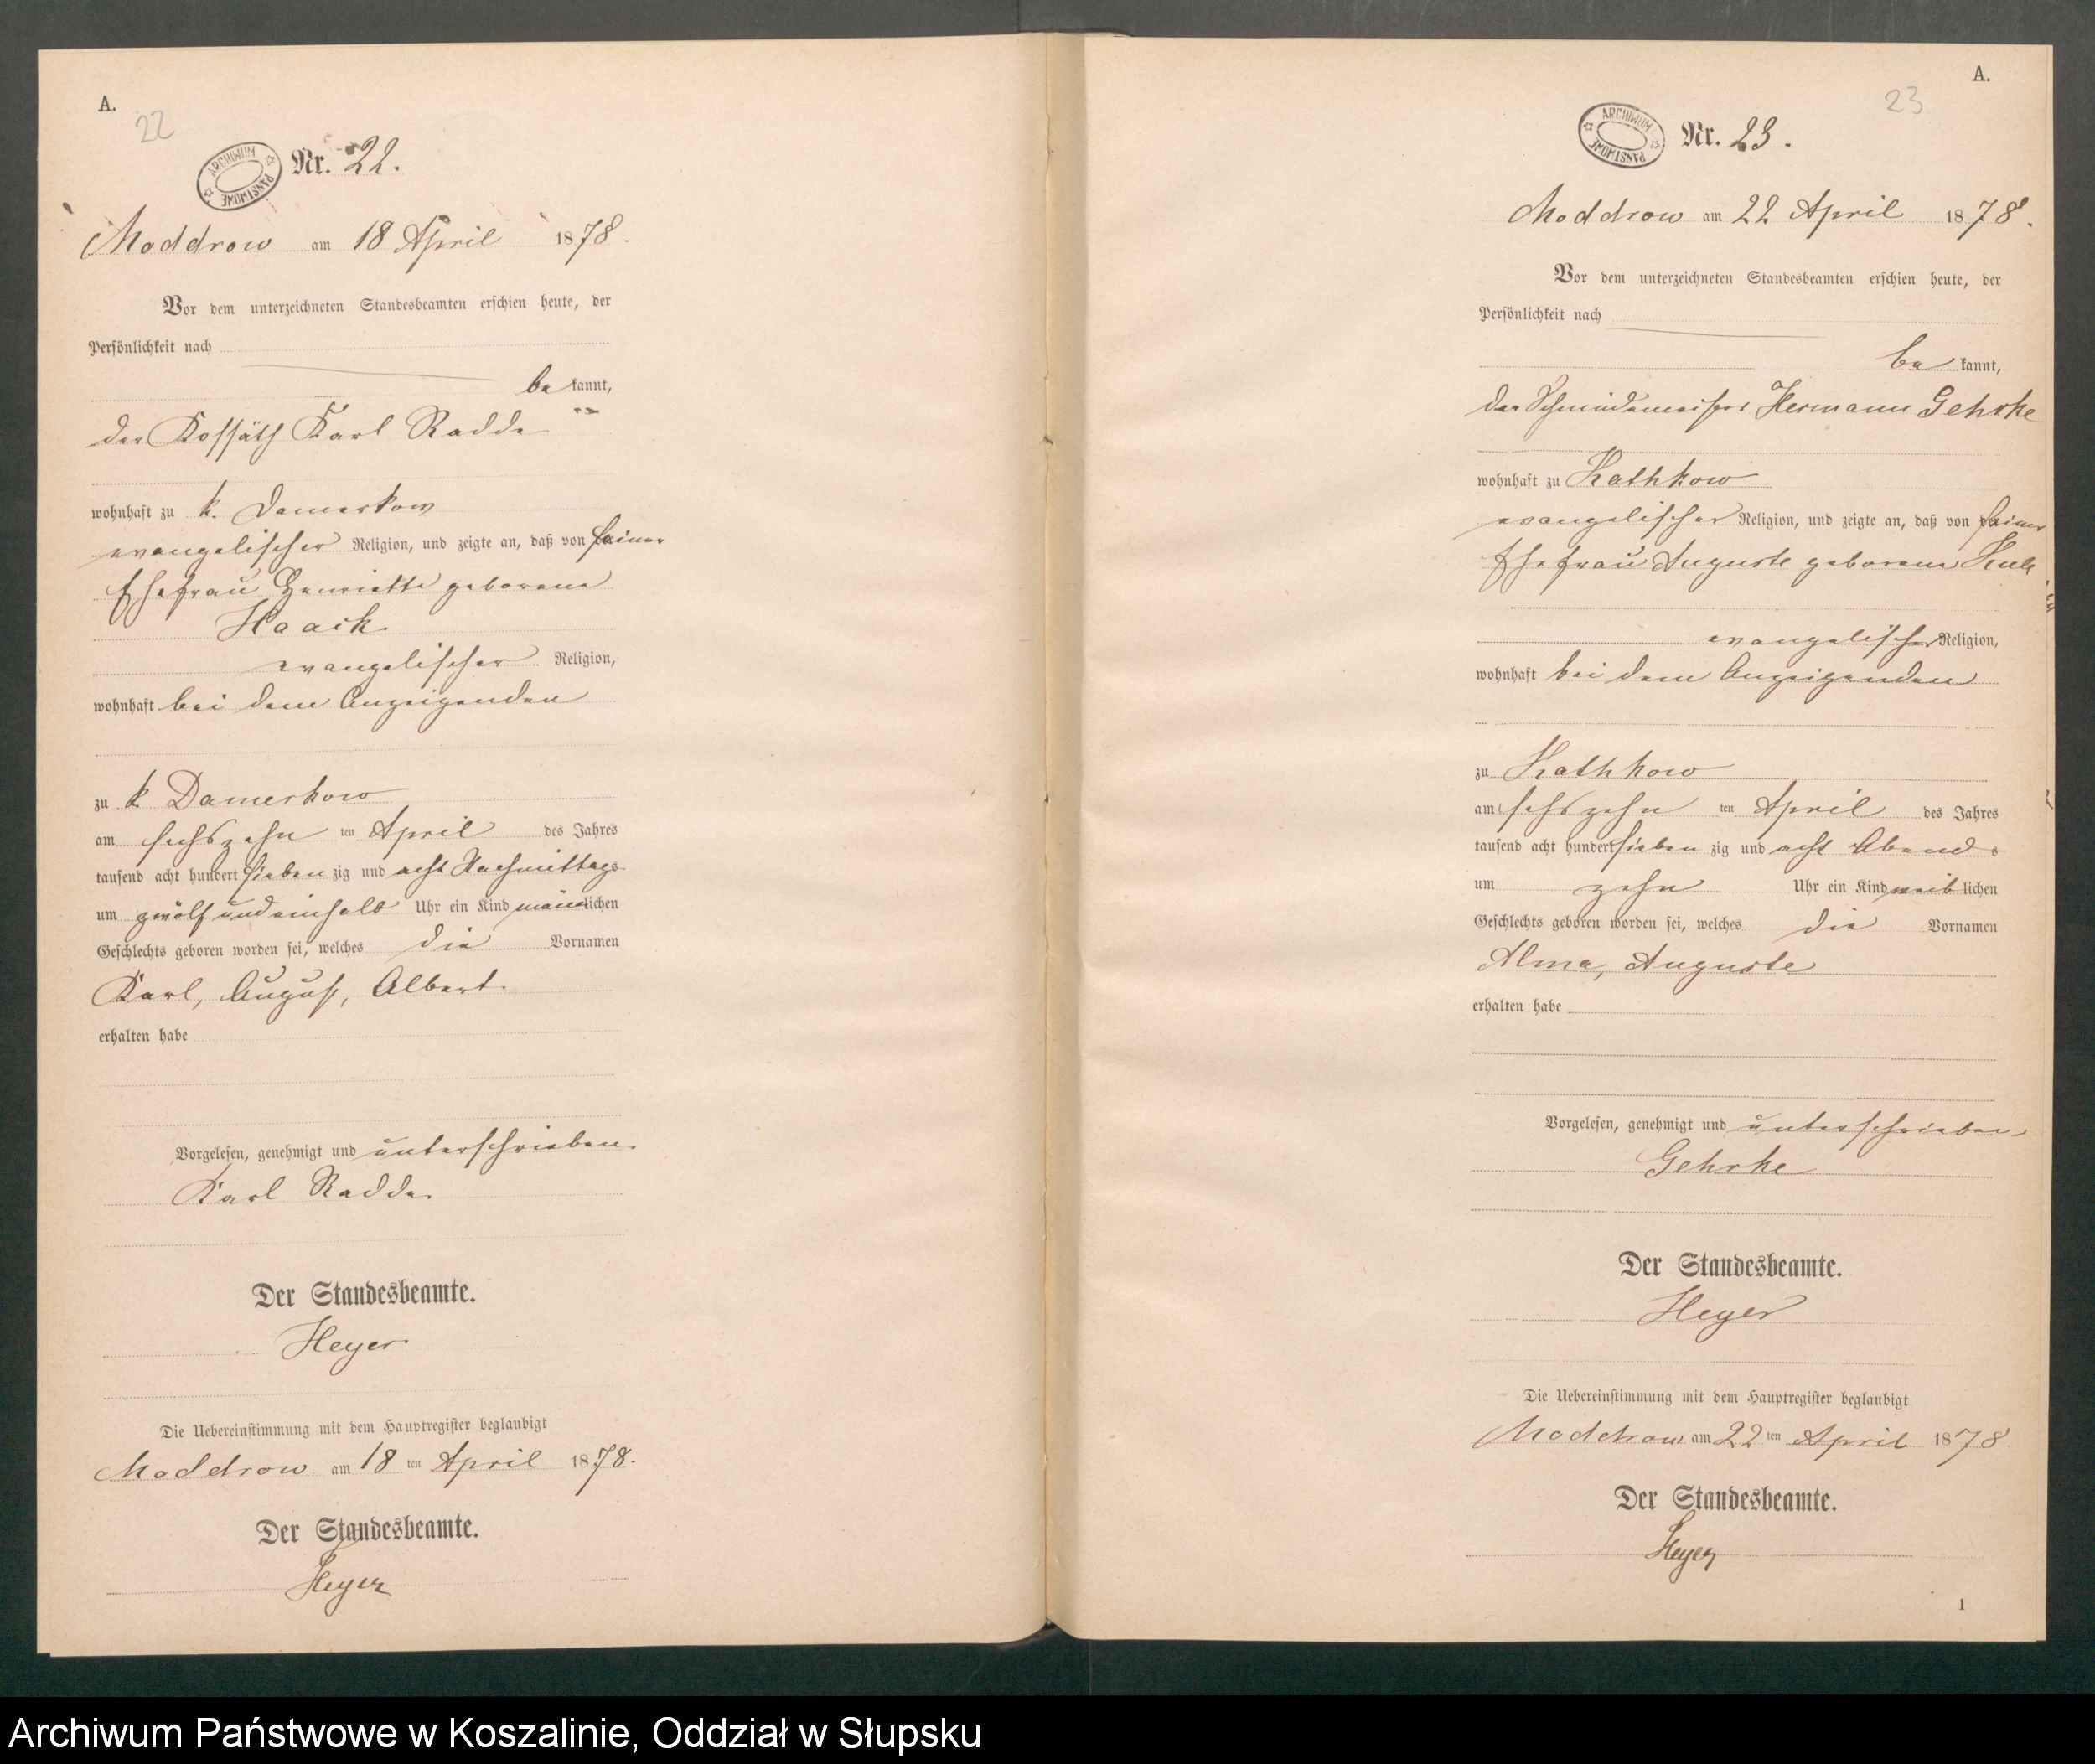 A.
22
ARCHIWUM PAŃSTWOWE
Nr. 22.
Moddrow am 18 April 1878.
Vor dem unterzeichneten Standesbeamten erschien heute, der
Persönlichkeit nach
be kannt,
der Kossäth Karl Radde
wohnhaft zu k. Damerkow
evangelischer Religion, und zeigte an, daß von seiner
Ehefrau Henriette geborene
Haack
evangelischer Religion,
wohnhaft bei dem Anzeigenden
zu k Damerkow
am sechszehn ten April des Jahres
tausend acht hundert sieben zig und acht Nachmittags
um zwölf und einhalb Uhr ein Kind männlichen
Geschlechts geboren worden sei, welches die Vornamen
Karl, August, Albert.
erhalten habe
Vorgelesen, genehmigt und unterschrieben.
Karl Radde.
Der Standesbeamte.
Heyer
Die Uebereinstimmung mit dem Hauptregister beglaubigt
Moddrow am 18 ten April 1878.
Der Standesbeamte.
Heyer
A.
23
ARCHIWUM PAŃSTWOWE
Nr. 23.
Moddrow am 22 April 1878.
Vor dem unterzeichneten Standesbeamten erschien heute, der
Persönlichkeit nach
be kannt,
der Schmiedemeister Hermann Gehrke
wohnhaft zu Kathkow
evangelischer Religion, und zeigte an, daß von seiner
Ehefrau Auguste geborene
evangelischer Religion,
wohnhaft bei dem Anzeigenden
zu Kathkow
am sechszehn ten April des Jahres
tausend acht hundert sieben zig und acht Abends
um zehn Uhr ein Kind weiblichen
Geschlechts geboren worden sei, welches die Vornamen
Alma, Auguste
erhalten habe
Vorgelesen, genehmigt und unterschrieben
Gehrke
Der Standesbeamte.
Heyer
Die Uebereinstimmung mit dem Hauptregister beglaubigt
Moddrow am 22 ten April 1878
Der Standesbeamte.
Heyer
1
Archiwum Państwowe w Koszalinie, Oddział w Słupsku